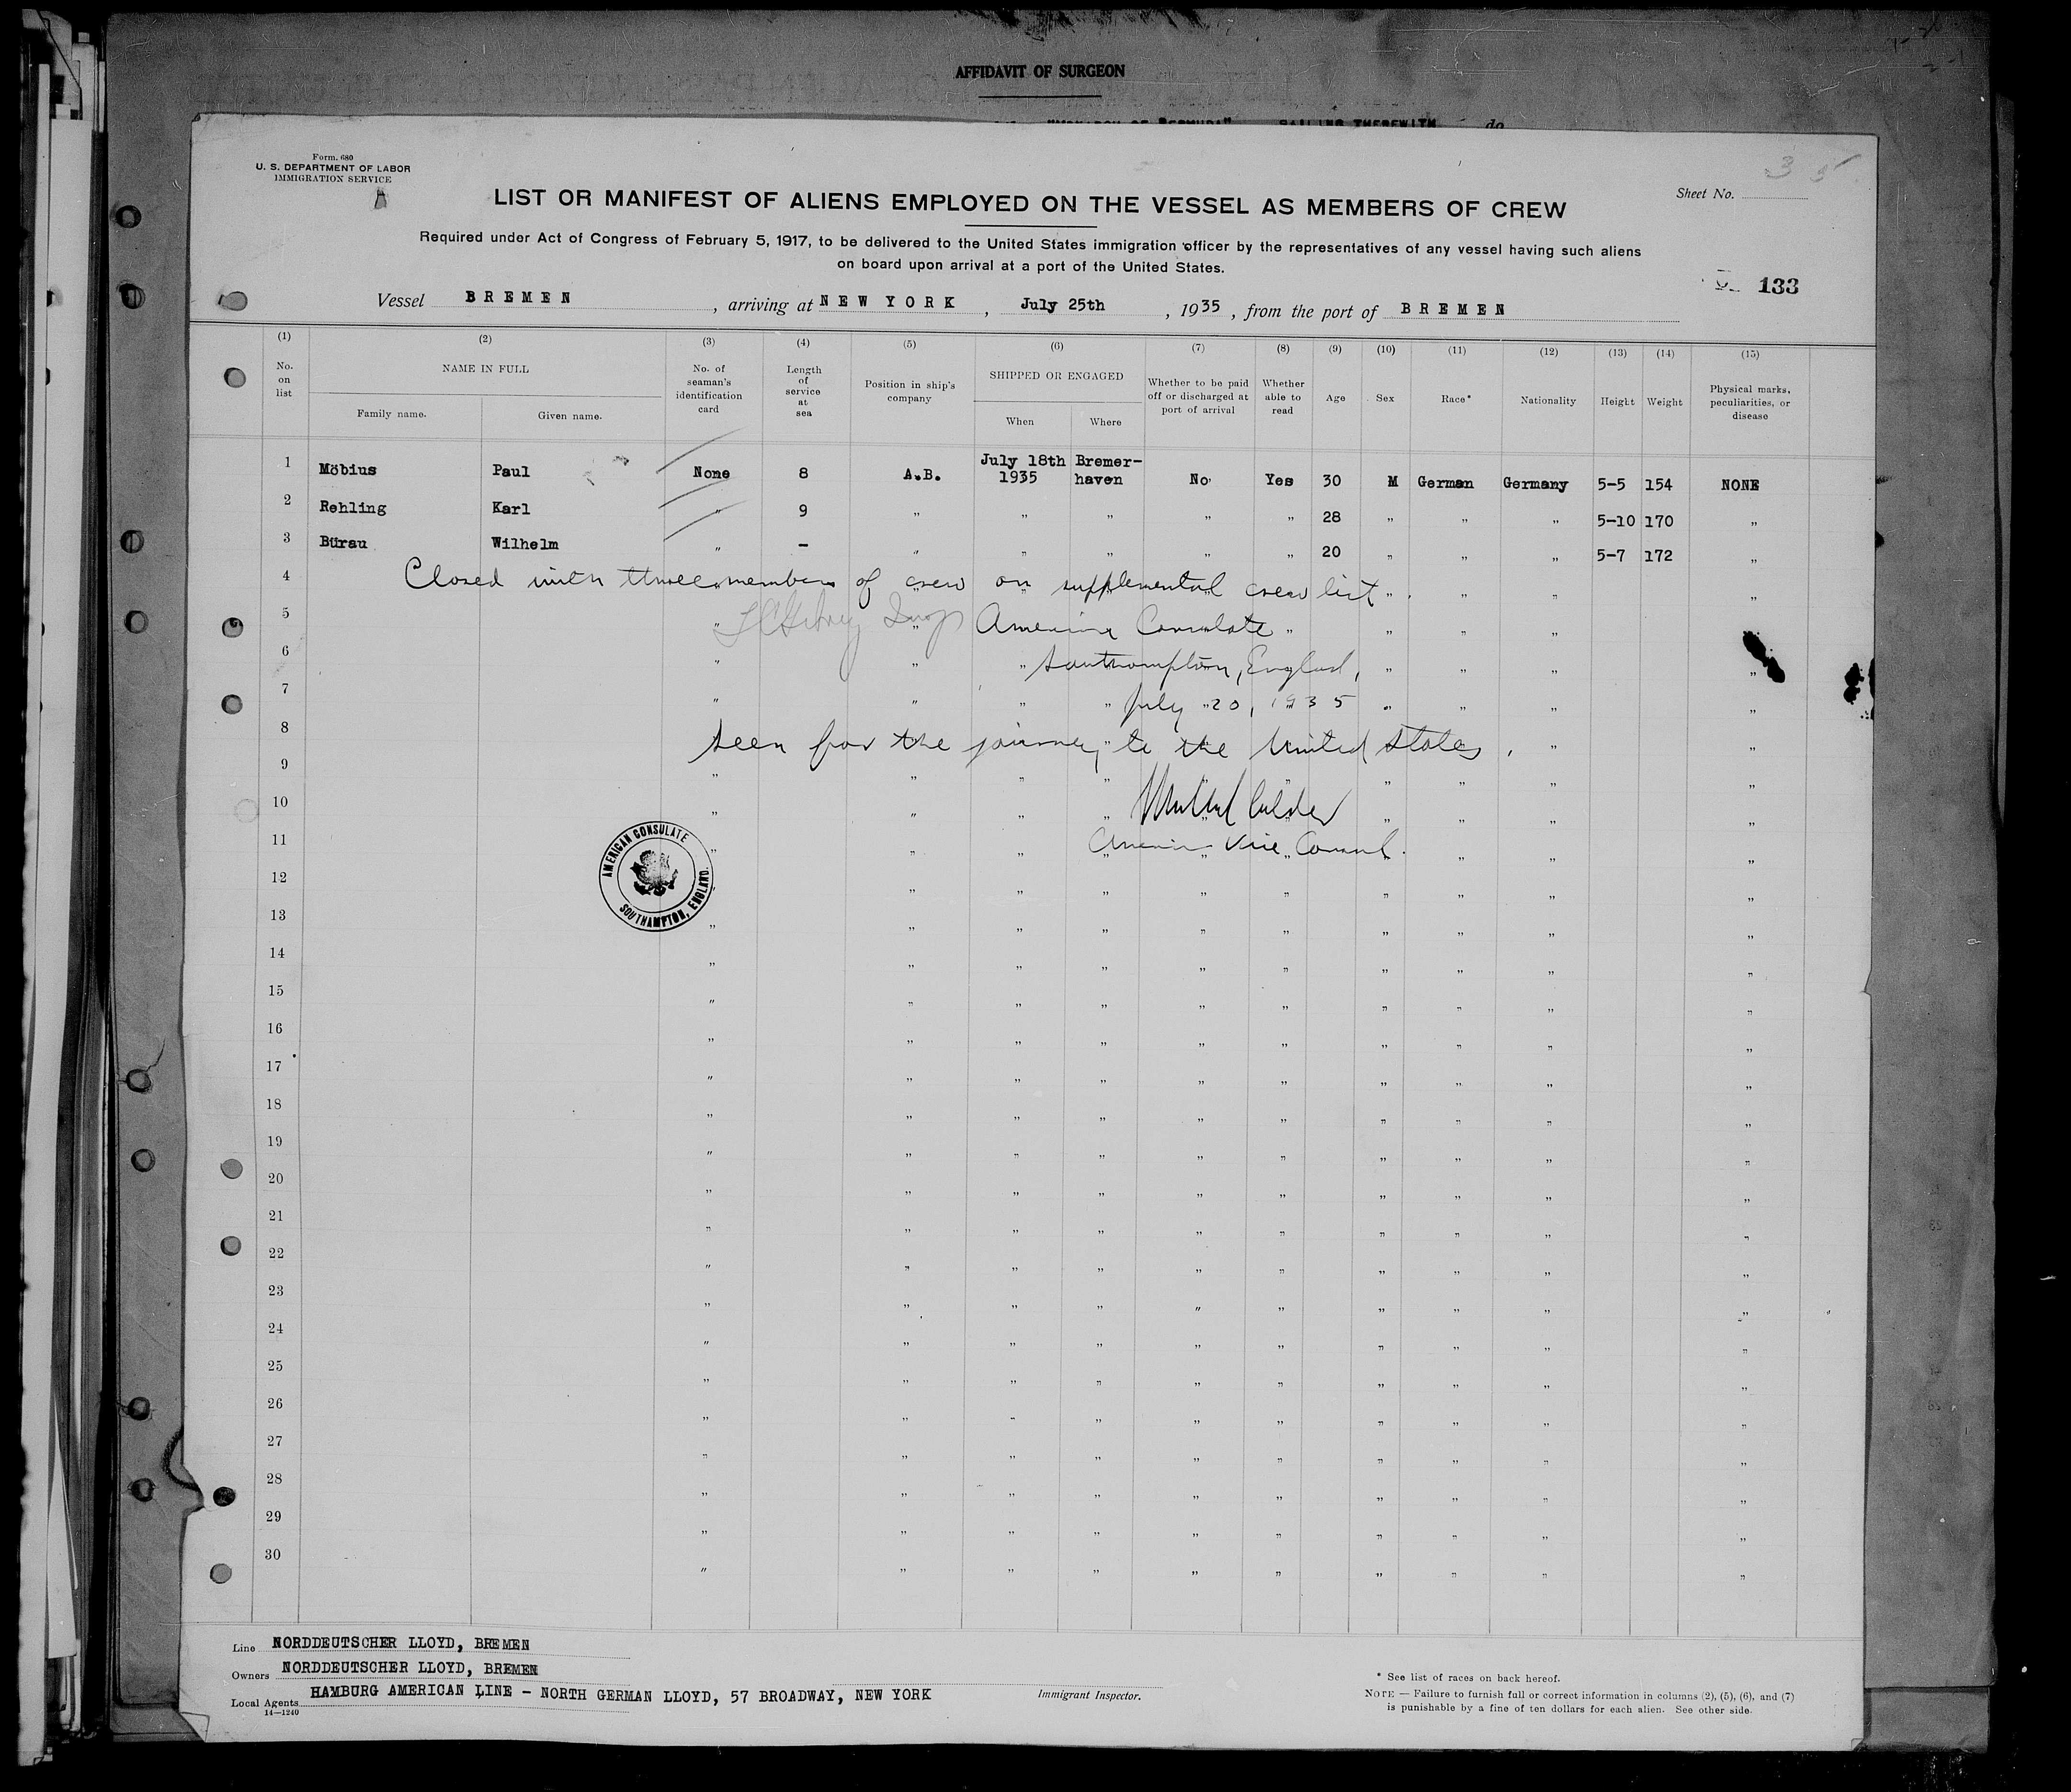 AFFIDAVIT OF SURGEON
"MONARCH OF BERMUDA" SAILING THEREWITH do
Form. 680
U. S. DEPARTMENT OF LABOR
IMMIGRATION SERVICE
Sheet No.
LIST OR MANIFEST OF ALIENS EMPLOYED ON THE VESSEL AS MEMBERS OF CREW
Required under Act of Congress of February 5, 1917, to be delivered to the United States immigration officer by the representatives of any vessel having such aliens
on board upon arrival at a port of the United States.
133
Vessel BREMEN , arriving at NEW YORK , July 25th , 1935 , from the port of BREMEN
(1) (2) (3) (4) (5) (6) (7) (8) (9) (10) (11) (12) (13) (14) (15)
No. on list
NAME IN FULL
Family name. Given name.
No. of seaman's identification card
Length of service at sea
Position in ship's company
SHIPPED OR ENGAGED
When Where
Whether to be paid off or discharged at port of arrival
Whether able to read
Age
Sex
Race*
Nationality
Height
Weight
Physical marks, peculiarities, or disease
1 Möbius Paul None 8 A.B. July 18th 1935 Bremer-haven No Yes 30 M German Germany 5-5 154 NONE
2 Rehling Karl " 9 " " " " " 28 " " " 5-10 170 "
3 Bürau Wilhelm " - " " " " " 20 " " " 5-7 172 "
4 Closed with three members of crew on supplemental crew list.
5 American Consulate
6 Southampton, England,
7 July 20, 1935
8 Seen for the journey to the United States.
9
10
11 American Vice Consul.
AMERICAN CONSULATE
SOUTHAMPTON, ENGLAND.
12
13
14
15
16
17
18
19
20
21
22
23
24
25
26
27
28
29
30
Line NORDDEUTSCHER LLOYD, BREMEN
Owners NORDDEUTSCHER LLOYD, BREMEN
Local Agents HAMBURG AMERICAN LINE - NORTH GERMAN LLOYD, 57 BROADWAY, NEW YORK
14—1240
Immigrant Inspector.
* See list of races on back hereof.
NOTE — Failure to furnish full or correct information in columns (2), (5), (6), and (7)
is punishable by a fine of ten dollars for each alien. See other side.